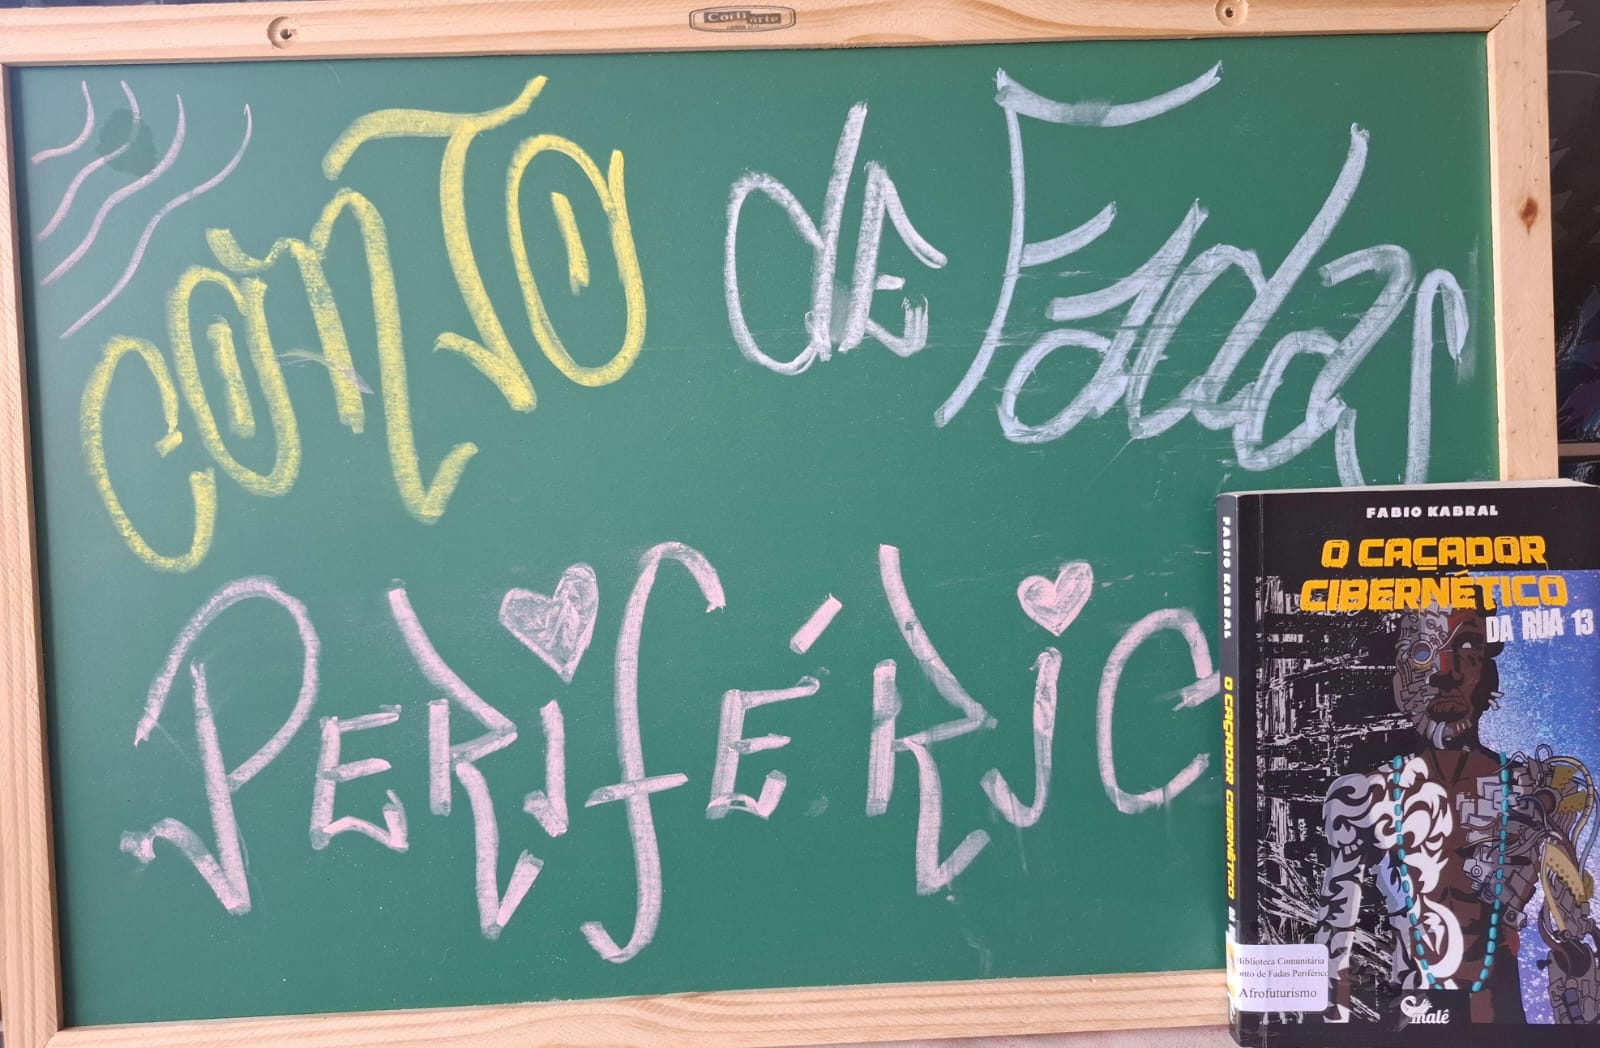 Corti arte
CONTO de Fadas
PERIFÉRIC
FABIO KABRAL
O CAÇADOR
CIBERNÉTICO
DA RUA 13
FABIO KABRAL O CAÇADOR CIBERNÉTICO
Biblioteca Comunitária
onto de Fadas Periféric
Afrofuturismo
malê